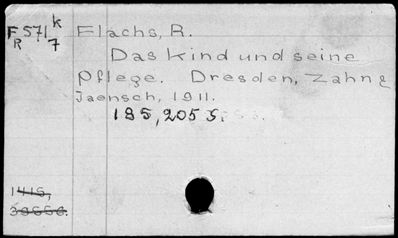 F571 k
R 7
Flachs, R.
Das Kind und seine
Pflege. Dresden, Zahn &
Jaensch, 1911.
185,205
1415,